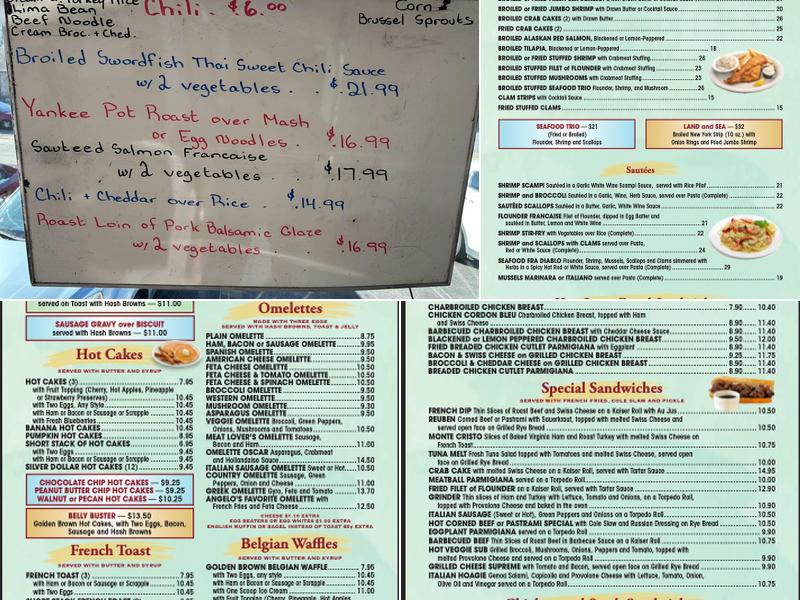 Chili . $6.00
Lima Bean
Beef Noodle
Cream Broc. + Ched.
Corn
Brussel Sprouts
Broiled Swordfish Thai Sweet Chili Sauce
w/ 2 vegetables . . $21.99
Yankee Pot Roast over Mash
or Egg Noodles . $16.99
Sauteed Salmon Francaise
w/ 2 vegetables . . $17.99
Chili + Cheddar over Rice . $14.99
Roast Loin of Pork Balsamic Glaze
w/ 2 vegetables . $16.99
BROILED or FRIED JUMBO SHRIMP with Drawn Butter or Cocktail Sauce 20
BROILED CRAB CAKES (2) with Drawn Butter 26
FRIED CRAB CAKES (2) 25
BROILED ALASKAN RED SALMON, Blackened or Lemon-Peppered 22
BROILED TILAPIA, Blackened or Lemon-Peppered 18
BROILED or FRIED STUFFED SHRIMP with Crabmeat Stuffing 26
BROILED STUFFED FILET of FLOUNDER with Crabmeat Stuffing 23
BROILED STUFFED MUSHROOMS with Crabmeat Stuffing 23
BROILED STUFFED SEAFOOD TRIO Flounder, Shrimp, and Mushroom 26
CLAM STRIPS with Cocktail Sauce 15
FRIED STUFFED CLAMS 15
SEAFOOD TRIO — $21
(Fried or Broiled)
Flounder, Shrimp and Scallops
LAND and SEA — $32
Broiled New York Strip (10 oz.) with
Onion Rings and Fried Jumbo Shrimp
Sautées
SHRIMP SCAMPI Sautéed in a Garlic White Wine Scampi Sauce, served with Rice Pilaf 21
SHRIMP and BROCCOLI Sautéed in a Garlic, Wine, Herb Sauce, served over Pasta (Complete) 22
SAUTÉED SCALLOPS Sautéed in a Butter, Garlic, White Wine Sauce 22
FLOUNDER FRANCAISE Filet of Flounder, dipped in Egg Batter and
sautéed in Butter, Lemon and White Wine 21
SHRIMP STIR-FRY with Vegetables over Rice (Complete) 22
SHRIMP and SCALLOPS with CLAMS served over Pasta,
Red or White Sauce (Complete) 24
SEAFOOD FRA DIABLO Flounder, Shrimp, Mussels, Scallops and Clams simmered with
Herbs in a Spicy Hot Red or White Sauce, served over Pasta (Complete) 29
MUSSELS MARINARA or ITALIANO served over Pasta (Complete) 19
served on Toast with Hash Browns — $11.00
SAUSAGE GRAVY over BISCUIT
served with Hash Browns — $11.00
Hot Cakes
SERVED WITH BUTTER AND SYRUP
HOT CAKES (3) 7.95
with Fruit Topping (Cherry, Hot Apples, Pineapple
or Strawberry Preserves) 10.45
with Two Eggs, Any Style 10.45
with Ham or Bacon or Sausage or Scrapple 10.45
with Fresh Blueberries 10.45
BANANA HOT CAKES 10.45
PUMPKIN HOT CAKES 8.95
SHORT STACK OF HOT CAKES (2) 6.95
with Two Eggs 9.45
with Ham or Bacon or Sausage or Scrapple 9.45
SILVER DOLLAR HOT CAKES (12) 9.45
CHOCOLATE CHIP HOT CAKES — $9.25
PEANUT BUTTER CHIP HOT CAKES — $9.25
WALNUT or PECAN HOT CAKES — $10.25
BELLY BUSTER — $13.50
Golden Brown Hot Cakes, with Two Eggs, Bacon,
Sausage and Hash Browns
French Toast
SERVED WITH BUTTER AND SYRUP
FRENCH TOAST (3) 7.95
with Ham or Bacon or Sausage or Scrapple 10.45
with Two Eggs 10.45
Omelettes
MADE WITH THREE EGGS
SERVED WITH HASH BROWNS, TOAST & JELLY
PLAIN OMELETTE 8.75
HAM, BACON or SAUSAGE OMELETTE 9.95
SPANISH OMELETTE 9.50
AMERICAN CHEESE OMELETTE 9.50
FETA CHEESE OMELETTE 9.50
FETA CHEESE & TOMATO OMELETTE 9.50
FETA CHEESE & SPINACH OMELETTE 9.50
BROCCOLI OMELETTE 9.50
WESTERN OMELETTE 9.50
MUSHROOM OMELETTE 9.30
ASPARAGUS OMELETTE 9.50
VEGGIE OMELETTE Broccoli, Green Peppers,
Onions, Mushrooms and Tomatoes 10.50
MEAT LOVER'S OMELETTE Sausage,
Bacon and Ham 11.00
OMELETTE OSCAR Asparagus, Crabmeat
and Hollandaise Sauce 14.50
ITALIAN SAUSAGE OMELETTE Sweet or Hot 10.50
COUNTRY OMELETTE Sausage, Green
Peppers, Onion and Cheese 11.00
GREEK OMELETTE Gyro, Feta and Tomato 13.70
ANGELO'S FAVORITE OMELETTE with
French Fries and Feta Cheese 12.50
CHEESE $1.10 EXTRA
EGG BEATERS OR EGG WHITES $1.50 EXTRA
ENGLISH MUFFIN OR BAGEL INSTEAD OF TOAST 60¢ EXTRA
Belgian Waffles
SERVED WITH BUTTER AND SYRUP
GOLDEN BROWN BELGIAN WAFFLE 7.95
with Two Eggs, any style 10.45
with Ham or Bacon or Sausage or Scrapple 10.45
with One Scoop Ice Cream 11.00
CHARBROILED CHICKEN BREAST 7.90 10.40
CHICKEN CORDON BLEU Charbroiled Chicken Breast, topped with Ham
and Swiss Cheese 8.90 11.40
BARBECUED CHARBROILED CHICKEN BREAST with Cheddar Cheese Sauce 8.90 11.40
BLACKENED or LEMON PEPPERED CHARBROILED CHICKEN BREAST 9.50 12.00
FRIED BREADED CHICKEN CUTLET PARMIGIANA with Eggplant 8.90 11.40
BACON & SWISS CHEESE on GRILLED CHICKEN BREAST 9.25 11.75
BROCCOLI & CHEDDAR CHEESE on GRILLED CHICKEN BREAST 8.90 11.40
BREADED CHICKEN CUTLET PARMIGIANA 8.90 11.40
Special Sandwiches
SERVED WITH FRENCH FRIES, COLE SLAW AND PICKLE
FRENCH DIP Thin Slices of Roast Beef and Swiss Cheese on a Kaiser Roll with Au Jus 10.50
REUBEN Corned Beef or Pastrami with Sauerkraut, topped with melted Swiss Cheese and
served open face on Grilled Rye Bread 10.50
MONTE CRISTO Slices of Baked Virginia Ham and Roast Turkey with melted Swiss Cheese on
French Toast 10.75
TUNA MELT Fresh Tuna Salad topped with Tomatoes and melted Swiss Cheese, served open
face on Grilled Rye Bread 10.00
CRAB CAKE with melted Swiss Cheese on a Kaiser Roll, served with Tartar Sauce 14.95
MEATBALL PARMIGIANA served on a Torpedo Roll 10.00
FRIED FILET of FLOUNDER on a Kaiser Roll, served with Tartar Sauce 12.90
GRINDER Thin slices of Ham and Turkey with Lettuce, Tomato and Onions, on a Torpedo Roll,
topped with Provolone Cheese and baked in the oven 10.90
ITALIAN SAUSAGE (Sweet or Hot), Green Peppers and Onions on a Torpedo Roll 10.50
HOT CORNED BEEF or PASTRAMI SPECIAL with Cole Slaw and Russian Dressing on Rye Bread 10.50
EGGPLANT PARMIGIANA served on a Torpedo Roll 9.90
BARBECUED BEEF Thin Slices of Roast Beef in Barbecue Sauce on a Kaiser Roll 10.75
HOT VEGGIE SUB Grilled Broccoli, Mushrooms, Onions, Peppers and Tomato, topped with
melted Provolone Cheese and served on a Torpedo Roll 9.90
GRILLED CHEESE SUPREME with Tomato and Bacon, served open face on Grilled Rye Bread 9.90
ITALIAN HOAGIE Genoa Salami, Capicola and Provolone Cheese with Lettuce, Tomato, Onion,
Olive Oil and Vinegar served on a Torpedo Roll 10.75